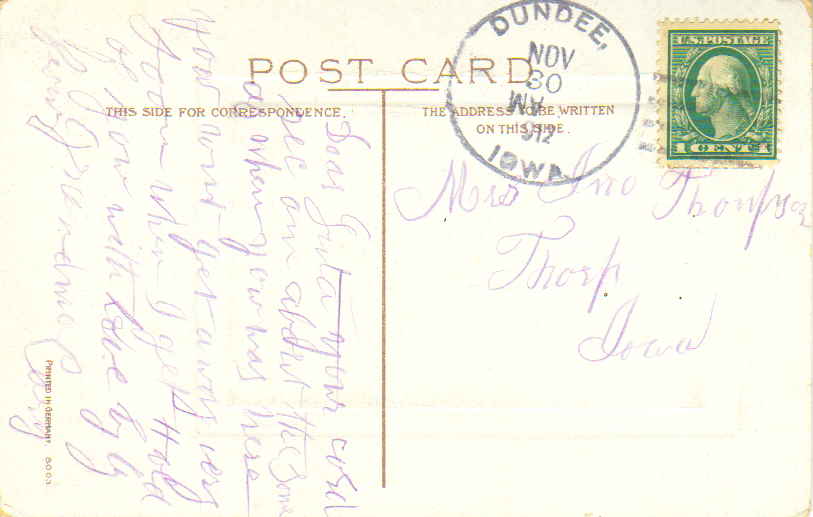 POST CARD
THIS SIDE FOR CORRESPONDENCE.
THE ADDRESS TO BE WRITTEN
ON THIS SIDE.
DUNDEE,
NOV
30
1912
IOWA
U.S. POSTAGE
1 CENT 1
Mrs Jno Thompson
Thorp
Iowa
Dear your card
Rec am about the same
as when you was here
you wont get away very
soon when I get Hold
of you with Love by by
from grandma
Cary
PRINTED IN GERMANY.
6003